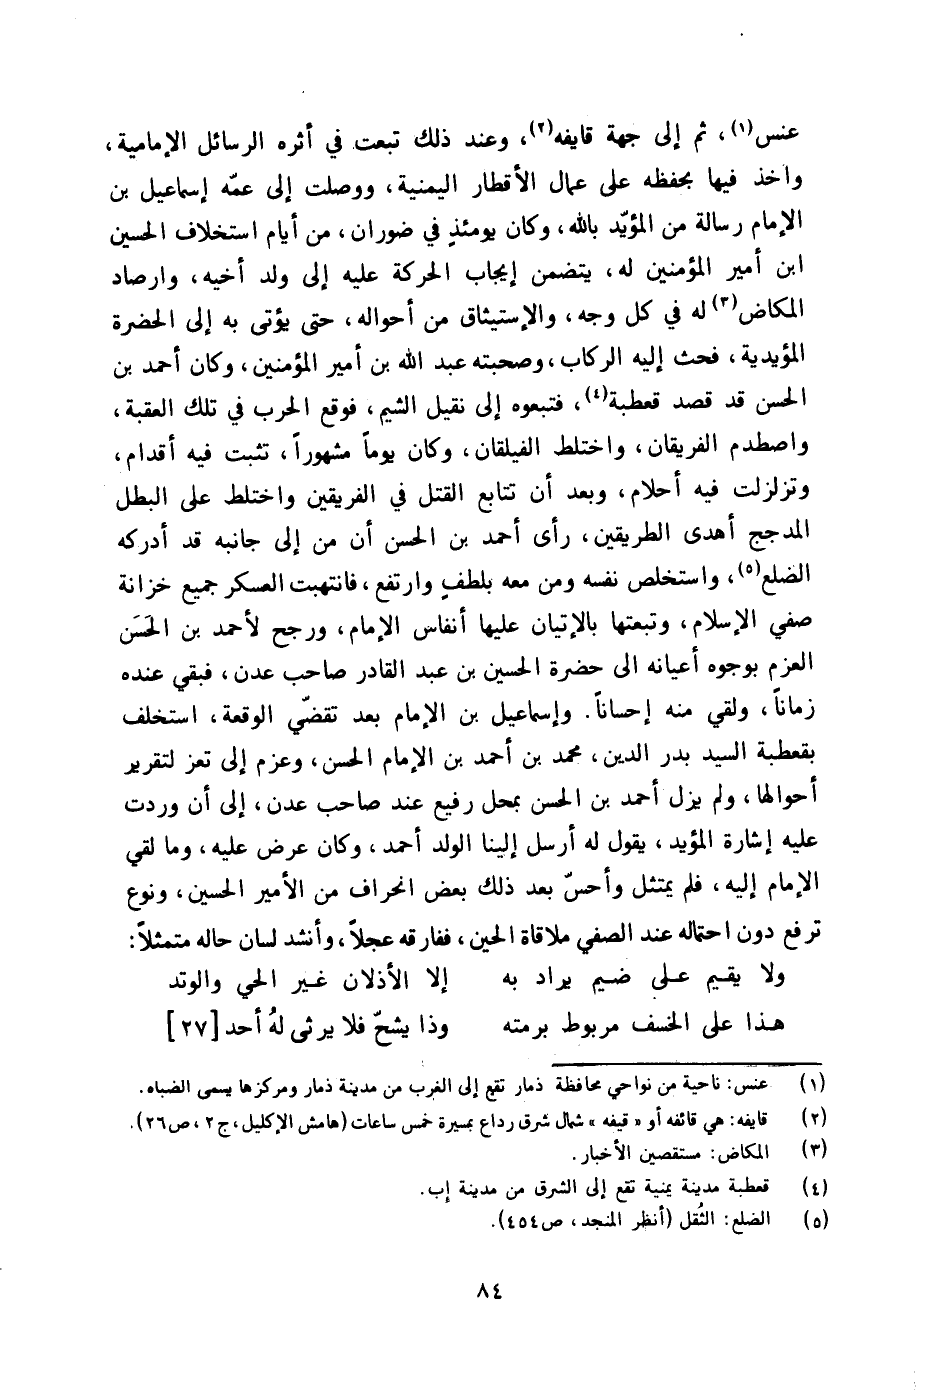 عنس(١)، ثم إلى جهة قايفه(٢)، وعند ذلك تبعت في أثره الرسائل الإمامية،
واخذ فيها بحفظه على عمال الأقطار اليمنية، ووصلت إلى عمّه إسماعيل بن
الإمام رسالة من المؤيّد بالله، وكان يومئذٍ في ضوران، من أيام استخلاف الحسين
ابن أمير المؤمنين له، يتضمن إيجاب الحركة عليه إلى ولد أخيه، وارصاد
المكاض(٣) له في كل وجه، والإستيثاق من أحواله، حتى يؤتى به إلى الحضرة
المؤيدية، فحث إليه الركاب، وصحبته عبد الله بن أمير المؤمنين، وكان أحمد بن
الحسن قد قصد قعطبة(٤)، فتبعوه إلى نقيل الشيم، فوقع الحرب في تلك العقبة،
واصطدم الفريقان، واختلط الفيلقان، وكان يوماً مشهوراً، تثبت فيه أقدام،
وتزلزلت فيه أحلام، وبعد أن تتابع القتل في الفريقين واختلط على البطل
المدجج أهدى الطريقين، رأى أحمد بن الحسن أن من إلى جانبه قد أدركه
الضلع(٥)، واستخلص نفسه ومن معه بلطفٍ وارتفع، فانتهبت العسكر جميع خزانة
صفي الإسلام، وتبعتها بالإتيان عليها أنفاس الإمام، ورجح لأحمد بن الحَسَن
العزم بوجوه أعيانه الى حضرة الحسين بن عبد القادر صاحب عدن، فبقي عنده
زماناً، ولقي منه إحساناً. وإسماعيل بن الإمام بعد تقضّي الوقعة، استخلف
بقعطبة السيد بدر الدين، محمد بن أحمد بن الإمام الحسن، وعزم إلى تعز لتقرير
أحوالها، ولم يزل أحمد بن الحسن بمحل رفيع عند صاحب عدن، إلى أن وردت
عليه إشارة المؤيد، يقول له أرسل إلينا الولد أحمد، وكان عرض عليه، وما لقي
الإمام إليه، فلم يمتثل وأحسّ بعد ذلك بعض انحراف من الأمير الحسين، ونوع
ترفع دون احتماله عند الصفي ملاقاة الحين، ففارقه عجلاً، وأنشد لسان حاله متمثلاً:
ولا يقيم على ضيم يراد به إلا الأذلان غير الحي والوتد
هذا على الخسف مربوط برمته وذا يشجّ فلا يرثى لهُ أحد [٢٧]
(١) عنس: ناحية من نواحي محافظة ذمار تقع إلى الغرب من مدينة ذمار ومركزها يسمى الضباه.
(٢) قايفه: هي قائفه أو «قيفه» شمال شرق رداع بمسيرة خمس ساعات (هامش الإكليل، ج٢، ص٢٦).
(٣) المكاض: مستقصين الأخبار.
(٤) قعطبة مدينة يمنية تقع إلى الشرق من مدينة إب.
(٥) الضلع: الثُقل (أنظر المنجد، ص٤٥٤).
٨٤